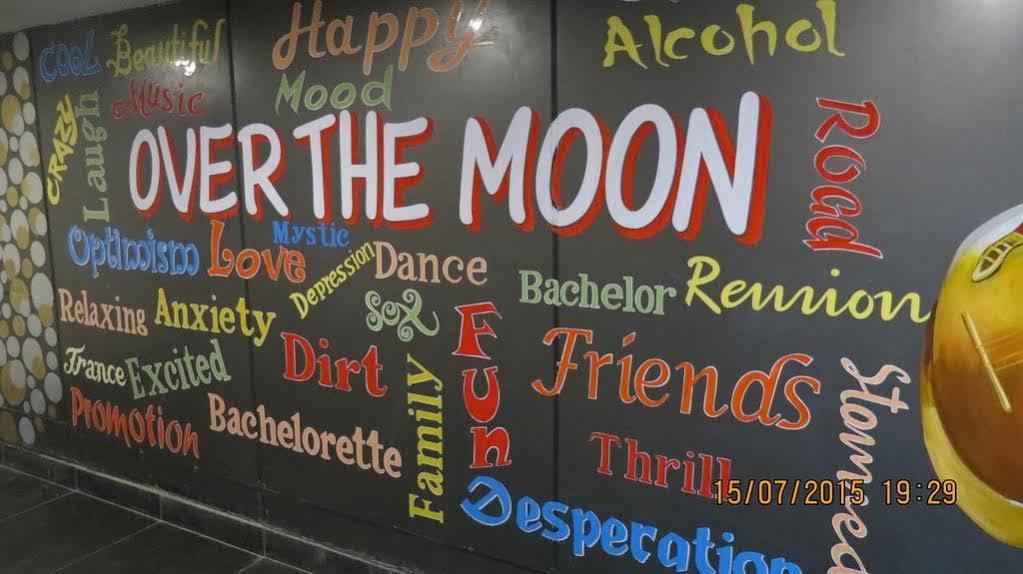 Happy
Alcohol
Cool
Beautiful
Music
Mood
CRAZY
Laugh
OVER THE MOON
Road
Optimism
Love
Mystic
Depression
Dance
Bachelor
Reunion
Relaxing
Anxiety
Sex
Fun
Trance
Excited
Dirt
Friends
Family
Stoned
Promotion
Bachelorette
Thrill
Desperation
15/07/2015 19:29